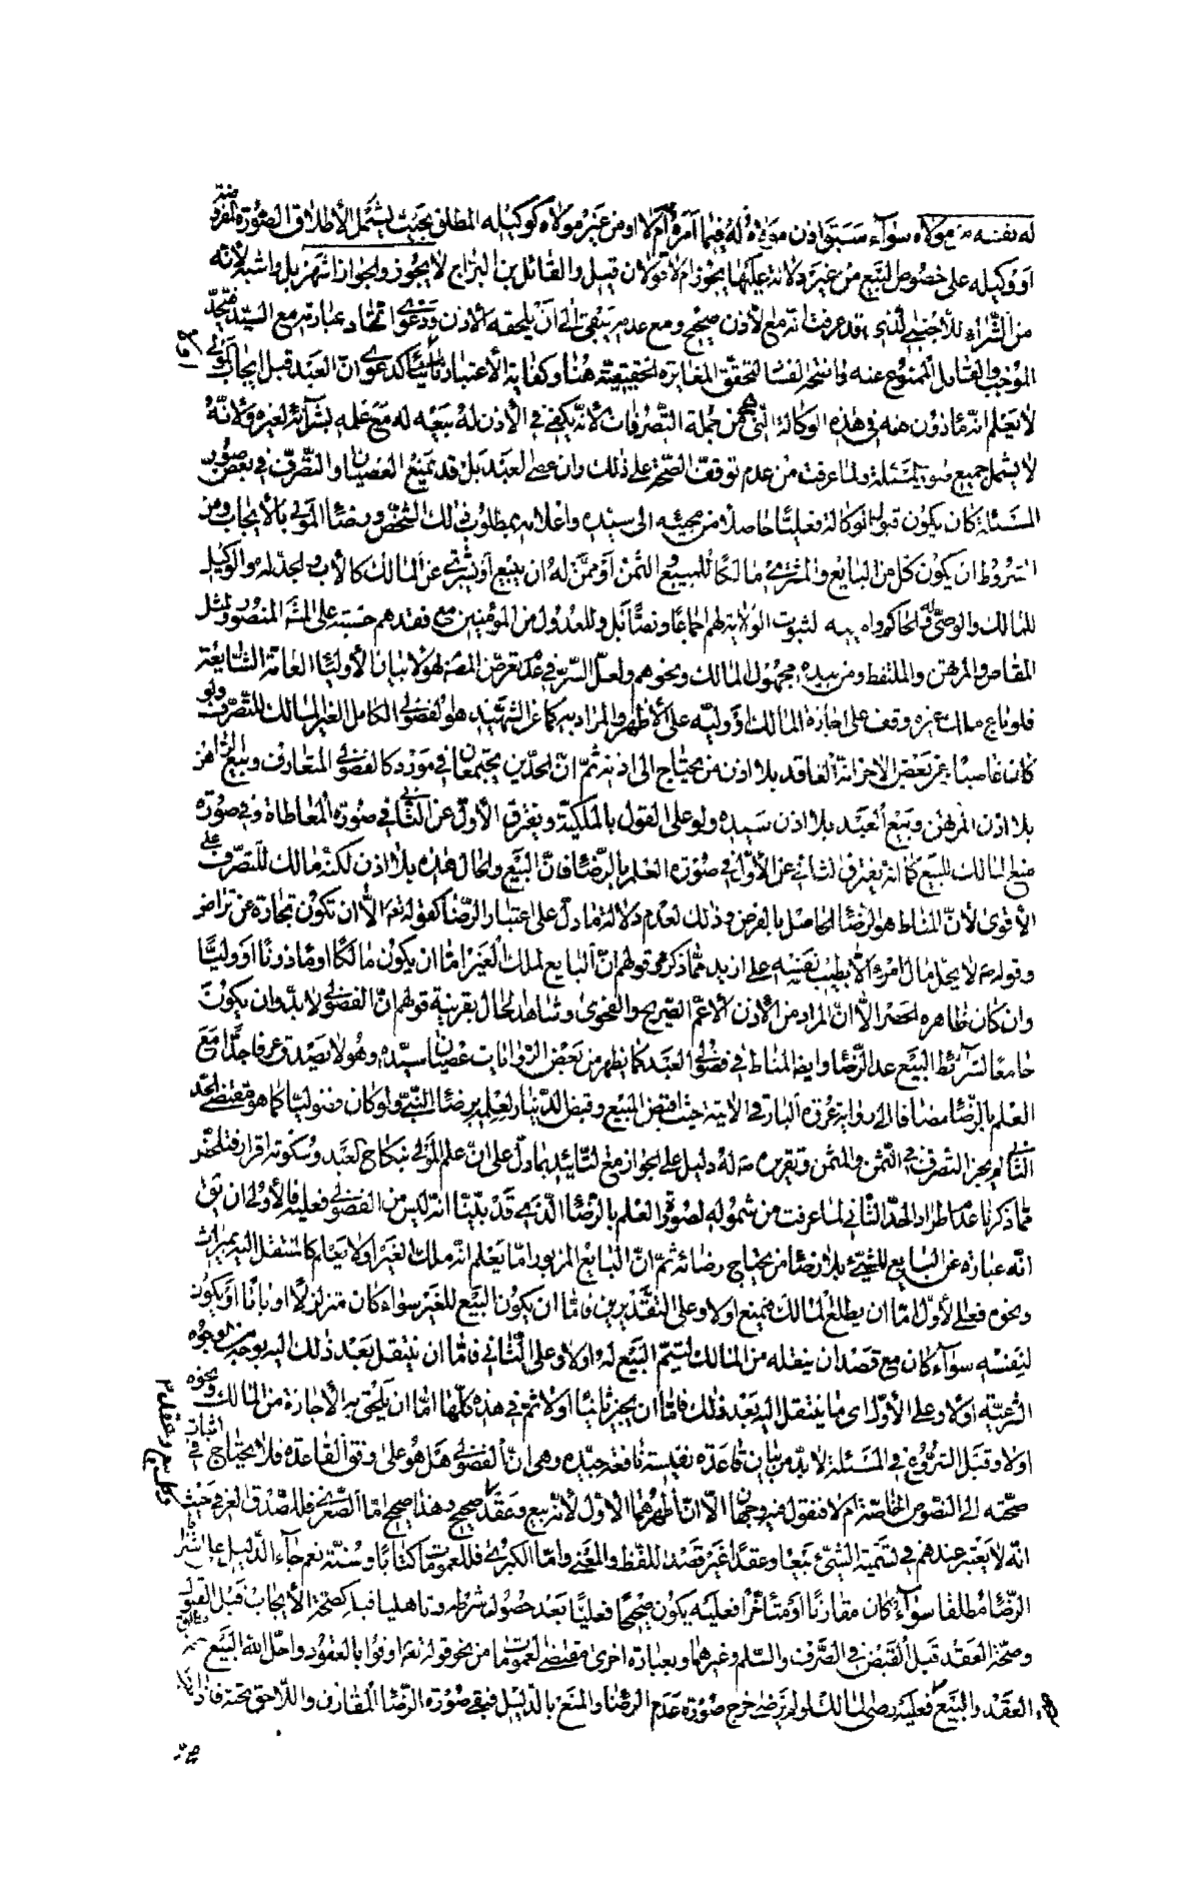 له نفسه من مولاه سواء سبق اذن مولاه له فيما امره ام لا او من غير مولاه كوكيله المطلق بحيث يشمل الأطلاق الصورة المفروضة
او وكيله على خصوص البيع من غير دلالة عليها يجوز ام لا قولان قيل والقائل ابن البراج لا يجوز والجواز اشهر بل واشبه لأنه
من الشراء للأجنبي الذي قد عرفت انه مع الأذن صحيح ومع عدمه يبقى الى ان يلحقه الأذن ودعوى اتحاد عبارته مع السيد فيتحد
الموجب والقابل الممنوع عنه واضحة الفساد لتحقق المغايرة الحقيقية هنا وكفاية الأعتبارية ثانيا كدعوى ان العبد قبل ايجاب المولى
لا يعلم انه مأذون منه في هذه الوكالة التي هي من جملة التصرفات لأنه يكفي في الأذن له بيعه له مع علمه بشرائه لغيره ولأنه
لا يشمل جميع صور المسئلة ولما عرفت من عدم توقف الصحة على ذلك وان عصى العبد بل قد يمنع العصيان والتصرف في بعض صور
المسئلة كان يكون قبول الوكالة فعليا حاصلا من مجيئه الى سيده واعلامه بمطلوب ذلك الشخص ورضا المولى بالأيجاب ومن
الشروط ان يكون كل من البايع والمشتري مالكا للمبيع والثمن او ممن له ان يبيع او يشتري عن المالك كالأب والجد له والوكيل
للمالك والوصي له والحاكم وامينه لثبوت الولاية لهم اجماعا ونصا بل وللعدول من المؤمنين مع فقدهم حسبة على المشهور المنصور ومثل
المقاص والمرتهن والملتقط ومن بيده مجهول المالك ونحوهم ولعل السر في عدم تعرض المصنف لهؤلاء بيان الأولياء العامة الشايعة
فلو باع ملك غيره وقف على اجازة المالك او وليه على الأظهر والمراد به كما عن الشهيد هو الفضولي الكامل الغير المالك للتصرف ولو
كان غاصبا وعن بعض الأجزاء انه العاقد بلا اذن من يحتاج الى اذنه ثم ان الحدين يجتمعان في مورد كالفضولي المتعارف وبيع الراهن
بلا اذن المرتهن وبيع العبد بلا اذن سيده ولو على القول بالملكية ويفترق الأول عن الثاني في صورة المعاطاة وفي صورة
منع المالك للبيع كما انه يفترق الثاني عن الأول في صورة العلم بالرضا فان البيع والحال هذه بلا اذن لكنه مالك للتصرف على
الأقوى لأن المناط هو الرضا الحاصل بالفرض وذلك لعدم دلالة ما دل على اعتبار الرضا كقوله تعالى الا ان تكون تجارة عن تراض
وقوله لا يحل مال امرء الا بطيب نفسه على ازيد مما ذكر وقولهم ان البايع لملك الغير اما ان يكون مالكا او مأذونا او وليا
وان كان ظاهره الحصر الا ان المراد من الأذن الأعم الصريح والفحوى وشاهد الحال بقرينة قولهم ان الفضولي لا بد وان يكون
جامعا لشرائط البيع عدا الرضا وايضا المناط في فضولي العبد كما يظهر من بعض الروايات عصيان سيده وهو لا يصدق عرفا جدا مع
العلم بالرضا مضافا الى رواية عروة البارقي الاتية حيث اقبض المبيع وقبض الدينار لعلمه برضا النبي ولو كان فضوليا كما هو مقتضى الحد
الثاني لم يجز التصرف في الثمن والمثمن وتقريره ص له دليل على الجواز مع التأييد بما دل على ان علم المولى بنكاح العبد وسكوته اقرار فتلخص
مما ذكرنا عدم اطراد الحد الثاني لما عرفت من شموله لصورة العلم بالرضا الذي قد بينا انه ليس من الفضولي فعليه فالأولى ان يق
انه عبارة عن البايع للشيء بلا رضا من يحتاج رضائه ثم ان البايع المزبور اما يعلم انه ملك الغير او لا يعلم كما انتقل اليه بميراث
ونحوه فعلى الأول اما ان يطلع المالك فيمنع او لا وعلى التقديرين فاما ان يكون البيع للغير سواء كان متزلزلا او باتا او يكون
لنفسه سواء كان مع قصد ان ينقله من المالك ليتم البيع له او لا وعلى الثاني فاما ان ينتقل بعد ذلك اليه بوجه من الوجوه
الشرعية او لا وعلى الأول اي ما ينتقل اليه بعد ذلك فاما ان يجيز ثانيا او لا ثم في هذه كلها اما ان يلحق به الأجازة من المالك ونحوه
او لا وقبل الشروع في المسئلة لا بد من بيان قاعدة نفيسة نافعة جيدة وهي ان الفضولي هل هو على وفق القاعدة فلا يحتاج في اثبات
صحته الى النصوص الخاصة ام لا فنقول فيه وجهان الا ان اظهرهما الأول لأنه بيع وعقد صحيح وهذا صحيح اما الصغرى فللصدق العرفي حيث
انه لا يعتبر عندهم في تسمية الشيء بيعا وعقدا غير قصد اللفظ والمعنى واما الكبرى فللعمومات كتابا وسنة نعم جاء الدليل على اشتراط
الرضا مطلقا سواء كان مقارنا او متأخرا فعليه يكون صحيحا فعليا بعد حصول شرطه وتاهليا قبله كصحة الأيجاب قبل القبول
وصحة العقد قبل القبض في الصرف والسلم وغيرهما وبعبارة اخرى مقتضى العمومات من نحو قوله تعالى اوفوا بالعقود واحل الله البيع
العقد والبيع فعليه رضى المالك او لم يرض خرج صورة عدم الرضا والمنع بالدليل فبقى صورة الرضا المقارن واللاحق تحته